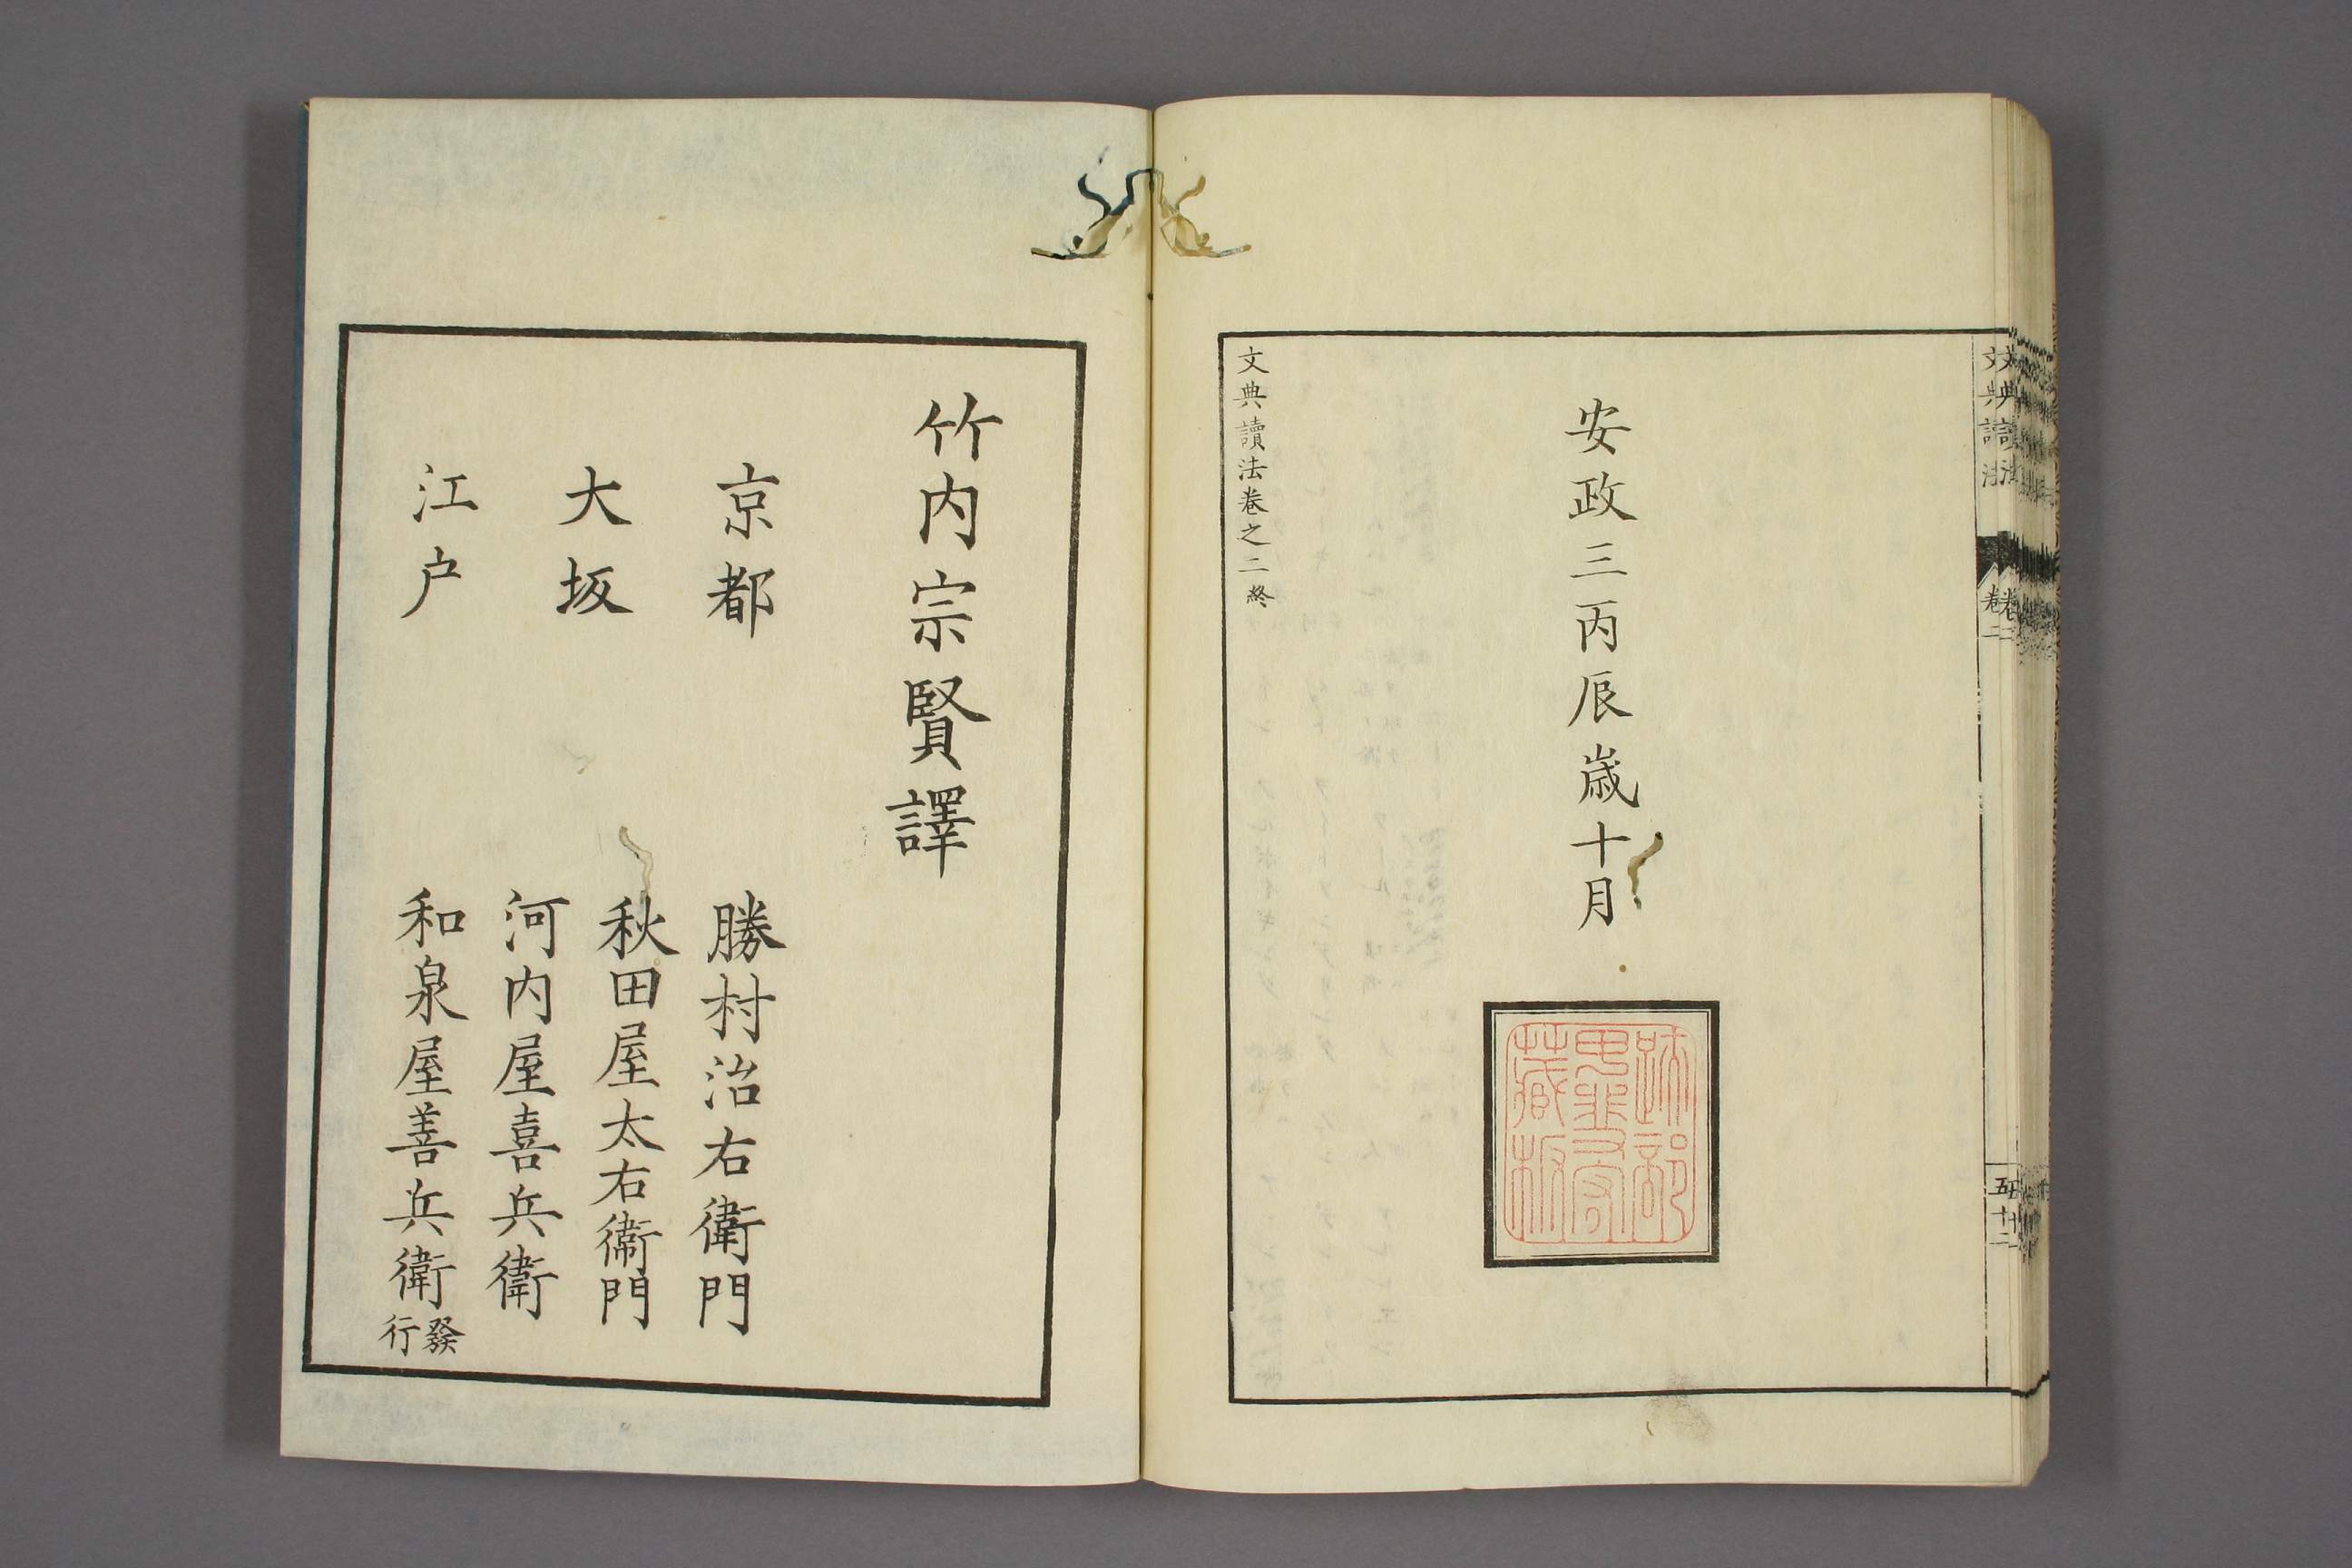 文典讀法　卷二　五十二
安政三丙辰歳十月
跡部
甲斐守
藏板
文典讀法卷之二終
竹内宗賢譯
京都　勝村治右衛門
大坂　秋田屋太右衞門
河内屋喜兵衛
江戸　和泉屋善兵衛發行